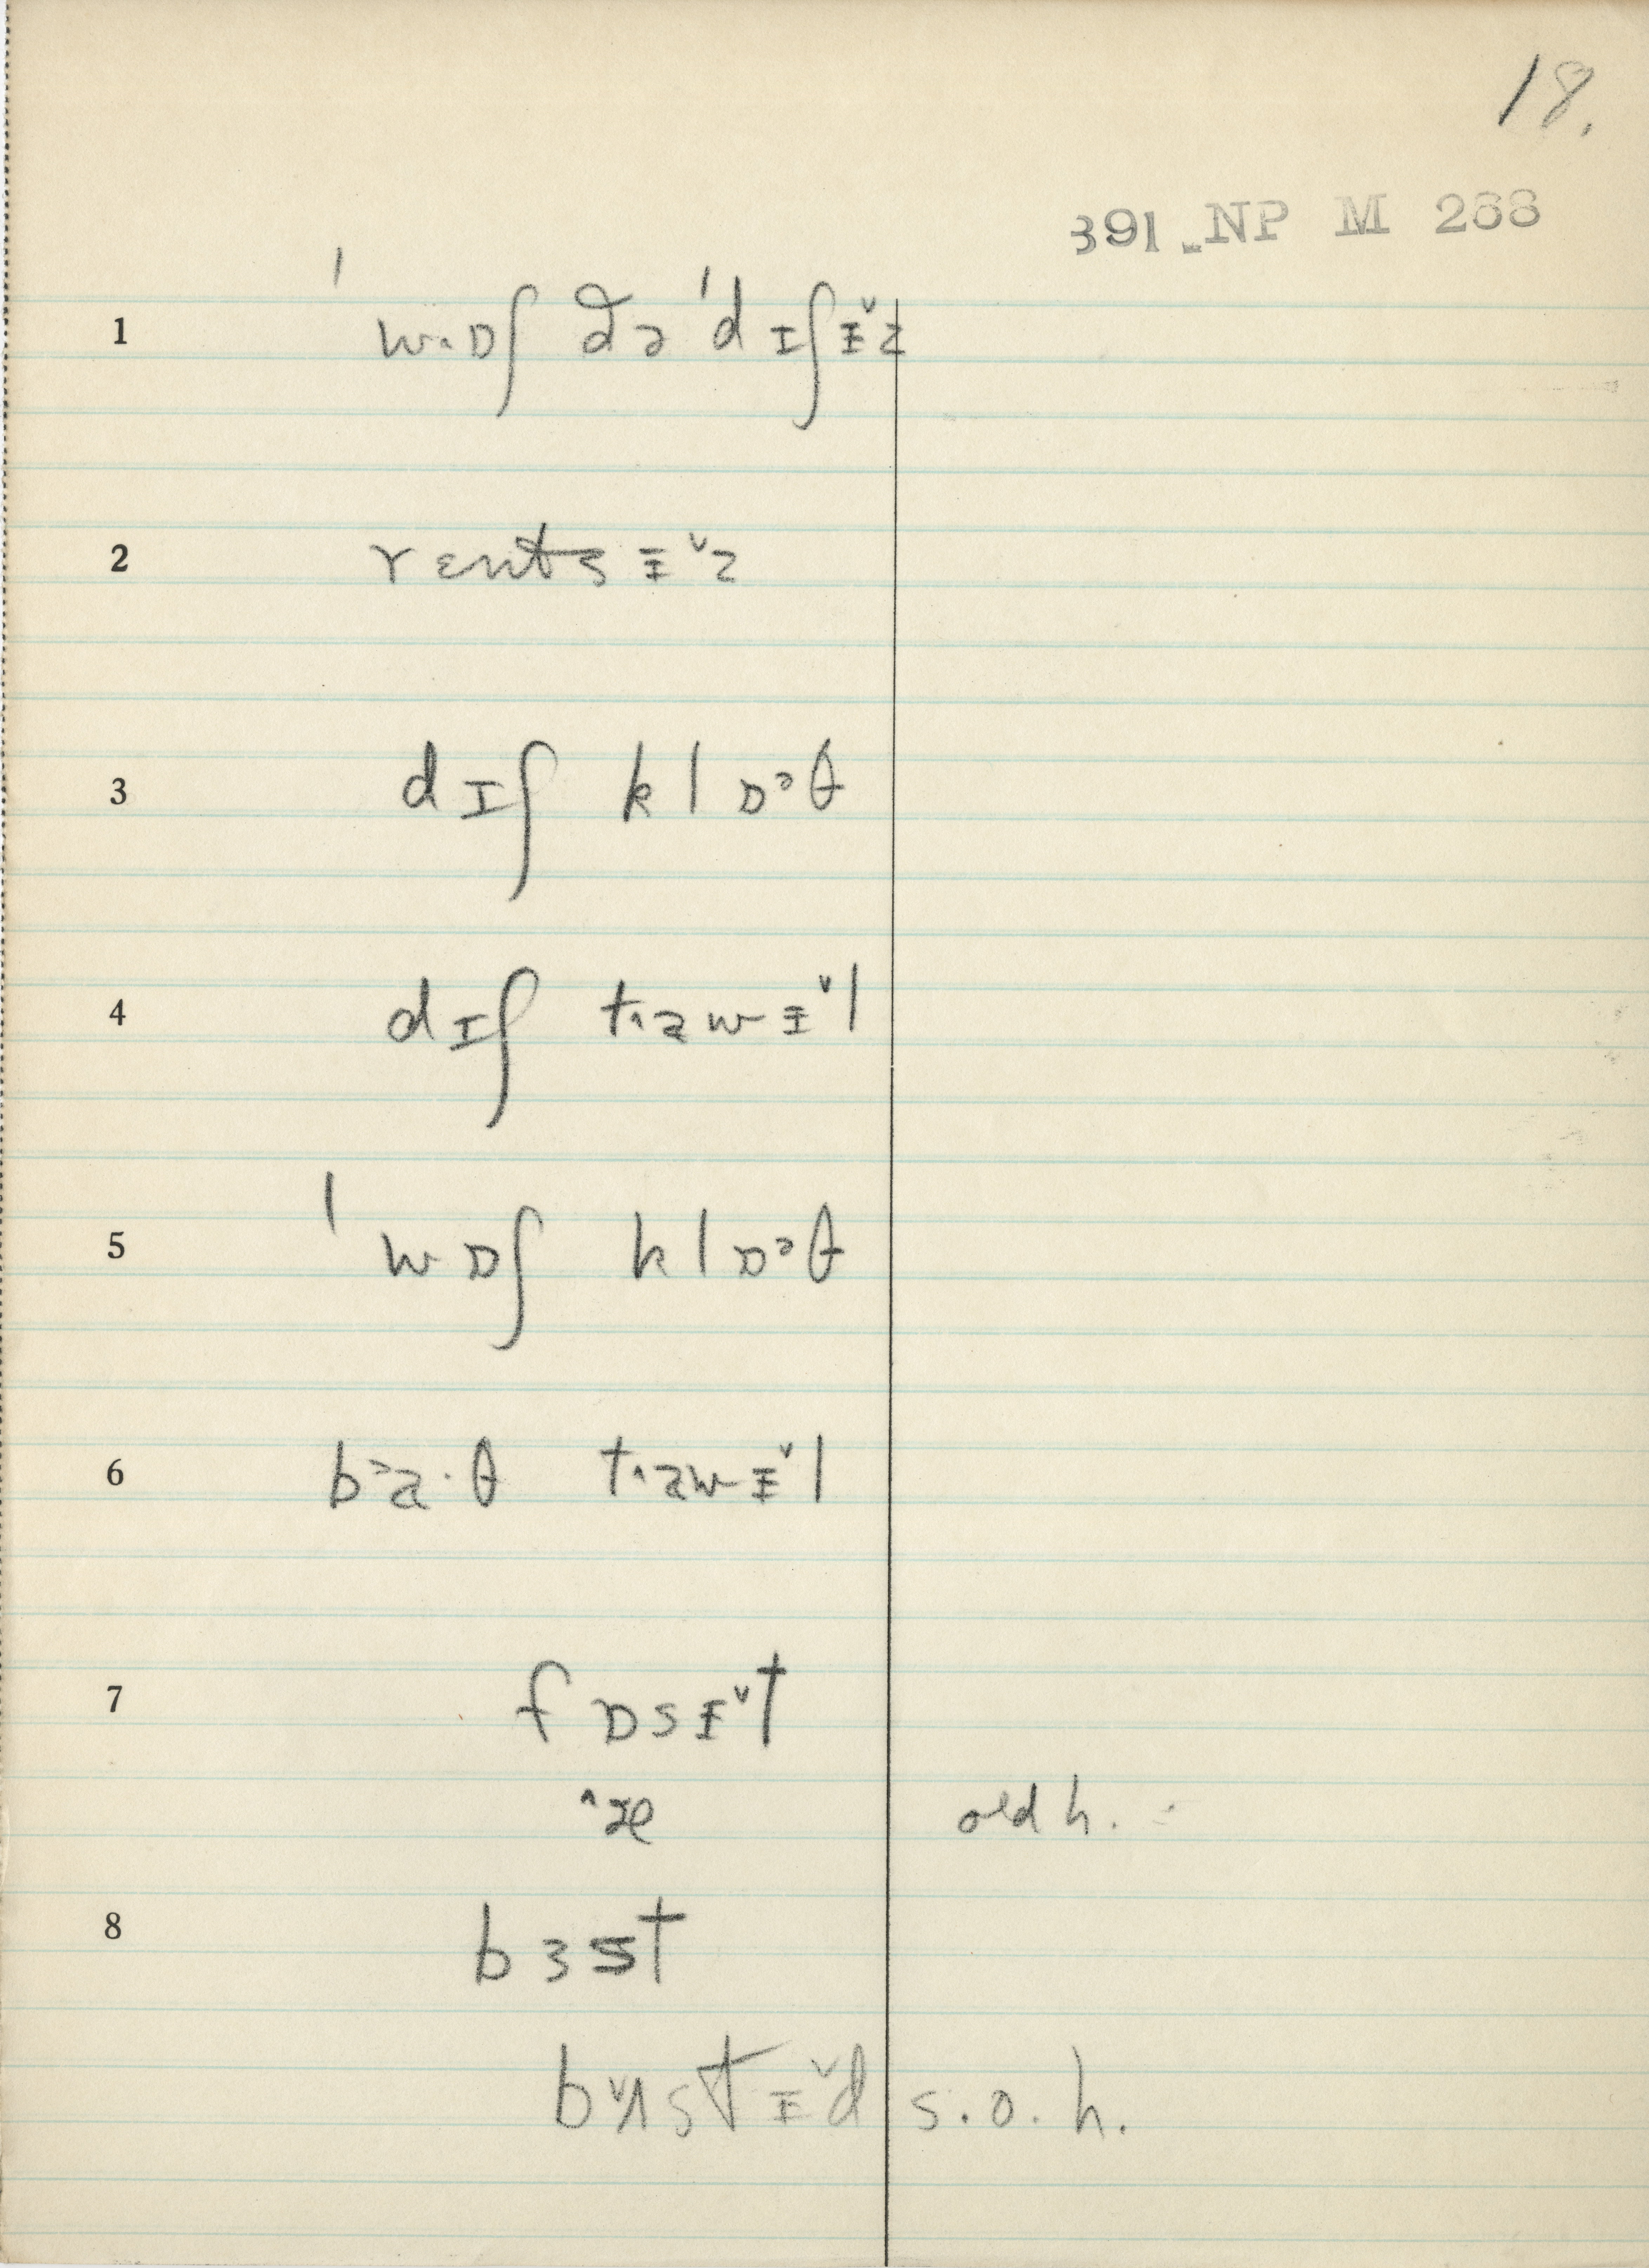 18.
391 NP M 268
1 ˈwˑɒʃ ðə ˈdɪʃɨ˅z
2 rɛntsɨ˅z
3 dɪʃ klɒᵊθ
4 dɪʃ tˑawɨ˅l
5 ˈwɒʃ klɒᵊθ
6 b˃aˑθ tˑawɨ˅l
7 fɒsɨ˅t
˄æ old h.
8 bɜst
bʌ˅stɨ˅d s.o.h.